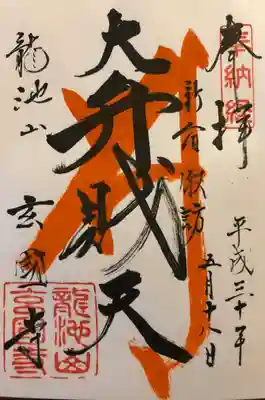 奉拝
奉納経
平成三十年
五月十八日
新宿諏訪
大弁財天
龍池山
玄國寺
龍池山
玄国寺